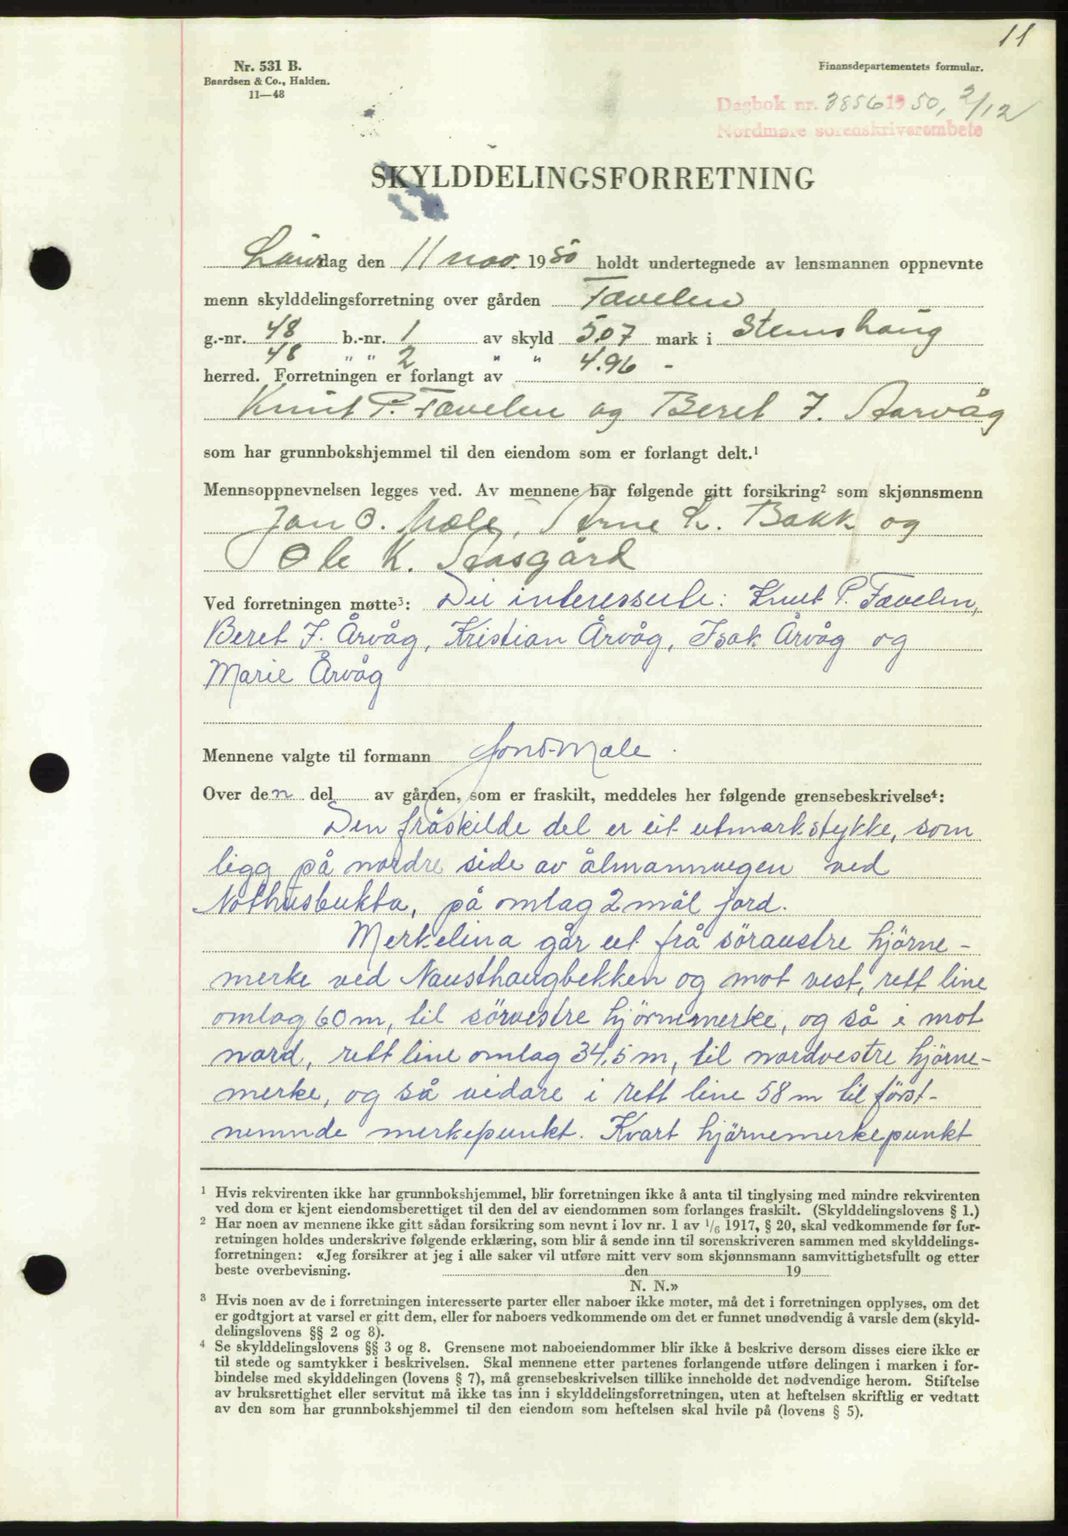 11
Nr. 531 B.
Baardsen & Co., Halden.
11—48
Finansdepartementets formular.
Dagbok nr. 3856 1950, 2/12
Nordmøre sorenskriverembete
SKYLDDELINGSFORRETNING
Laurdag den 11 nov. 1950 holdt undertegnede av lensmannen oppnevnte
menn skylddelingsforretning over gården Tævelen
g.-nr. 48 b.-nr. 1 av skyld 5.07 mark i Stemshaug
48 " " 2 " " 4.96 -
herred. Forretningen er forlangt av
Knut P. Tævelen og Beret J. Aarvåg
som har grunnbokshjemmel til den eiendom som er forlangt delt.¹
Mennsoppnevnelsen legges ved. Av mennene har følgende gitt forsikring² som skjønnsmenn
Jon O. Mæle, Arne L. Bakk og
Ole K. Aasgård
Ved forretningen møtte³: Dei interesserte: Knut P. Tævelen,
Beret J. Årvåg, Kristian Årvåg, Isak Årvåg og
Marie Årvåg
Mennene valgte til formann Jon O. Mæle.
Over den del av gården, som er fraskilt, meddeles her følgende grensebeskrivelse⁴:
Den fråskilde del er eit utmarkstykke, som
ligg på nordre side av ålmannvegen ved
Nothusbukta, på omlag 2 mål jord.
Merkelina går ut frå søraustre hjørne-
merke ved Nausthaugbekken og mot vest, rett line
omlag 60 m, til sørvestre hjørnemerke, og så i mot
nord, rett line omlag 34,5 m, til nordvestre hjørne-
merke, og så vidare i rett line 58 m til først-
nemnde merkepunkt. Kvart hjørnemerkepunkt
¹ Hvis rekvirenten ikke har grunnbokshjemmel, blir forretningen ikke å anta til tinglysing med mindre rekvirenten
ved dom er kjent eiendomsberettiget til den del av eiendommen som forlanges fraskilt. (Skylddelingslovens § 1.)
² Har noen av mennene ikke gitt sådan forsikring som nevnt i lov nr. 1 av 1/6 1917, § 20, skal vedkommende før for-
retningen holdes underskrive følgende erklæring, som blir å sende inn til sorenskriveren sammen med skylddelings-
forretningen: «Jeg forsikrer at jeg i alle saker vil utføre mitt verv som skjønnsmann samvittighetsfullt og etter
beste overbevisning. den 19
N. N.»
³ Hvis noen av de i forretningen interesserte parter eller naboer ikke møter, må det i forretningen opplyses, om det
er godtgjort at varsel er gitt dem, eller for naboers vedkommende om det er funnet unødvendig å varsle dem (skyld-
delingslovens §§ 2 og 8).
⁴ Se skylddelingslovens §§ 3 og 8. Grensene mot naboeiendommer blir ikke å beskrive dersom disses eiere ikke er
til stede og samtykker i beskrivelsen. Skal mennene etter partenes forlangende utføre delingen i marken i for-
bindelse med skylddelingen (lovens § 7), må grensebeskrivelsen tillike inneholde det nødvendige herom. Stiftelse
av bruksrettighet eller servitut må ikke tas inn i skylddelingsforretningen, uten at heftelsen skriftlig er vedtatt
av den som har grunnbokshjemmel til den eiendom som heftelsen skal hvile på (lovens § 5).